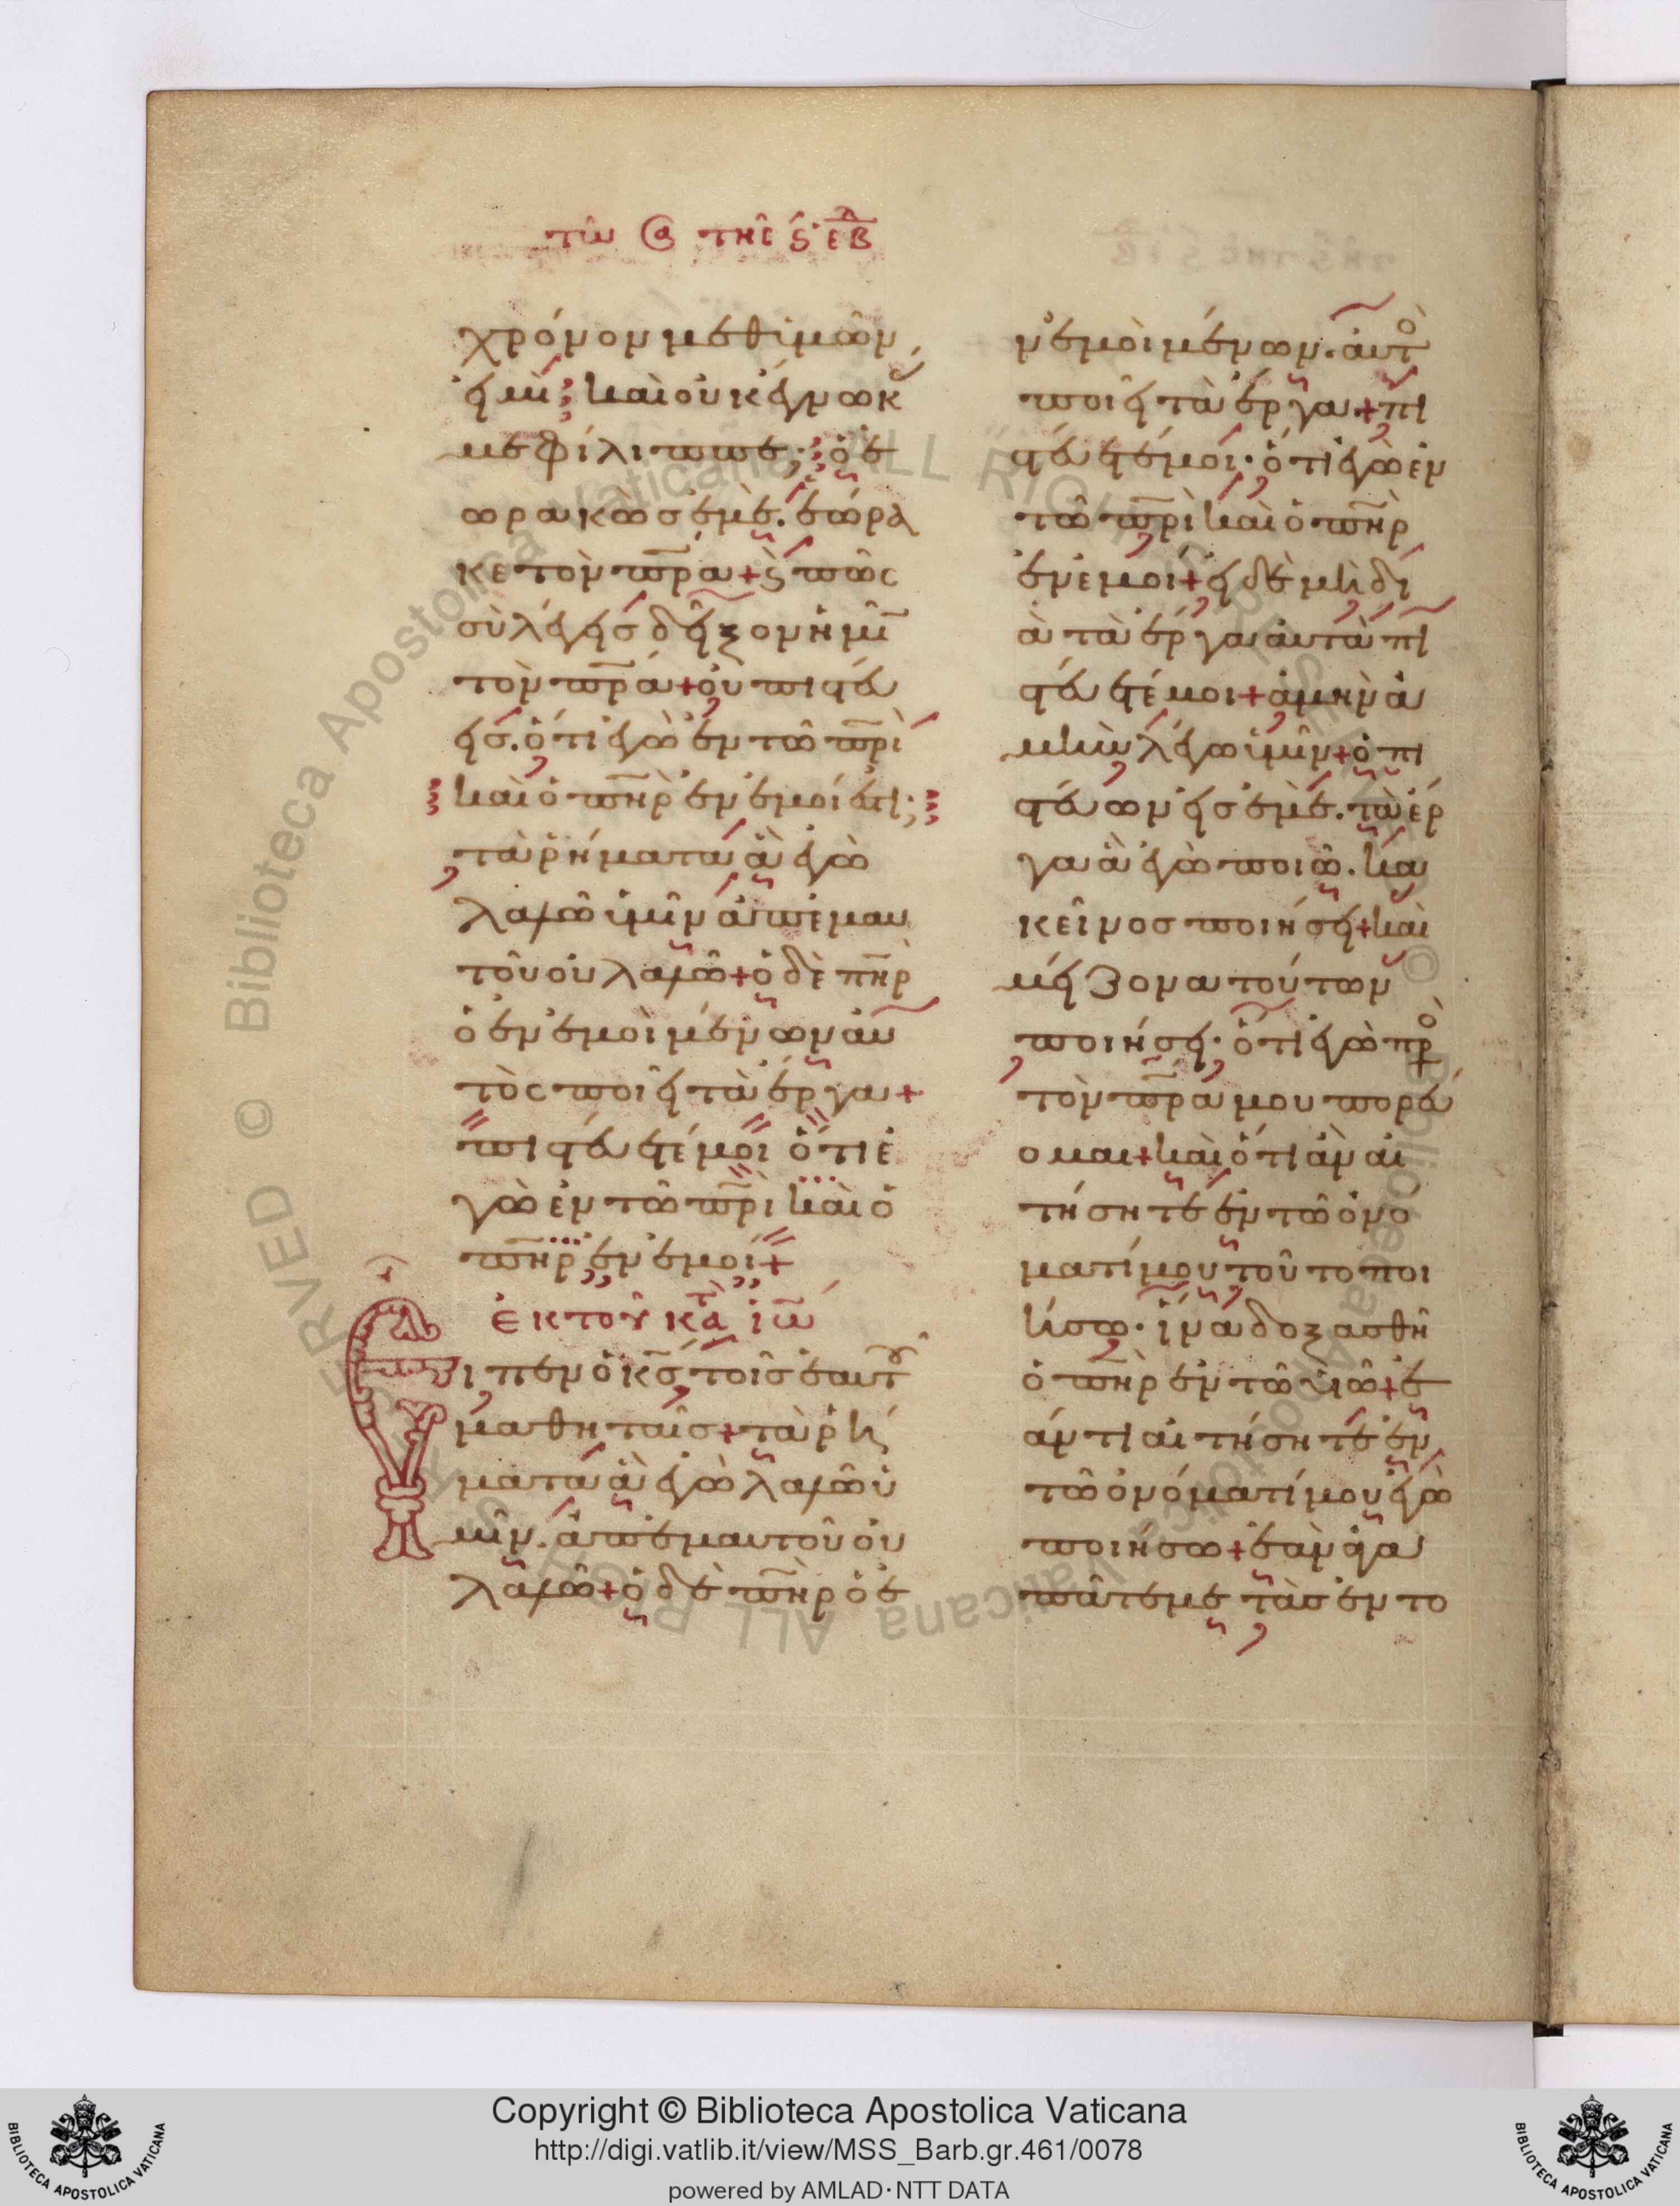 τῶ Σα τῆς ς ἑβδ
χρόνον μεθ ἱμῶν
εἰμὶ; καὶ οὐκ ἔγνωκ
με φίλιππε; ὁ ἑ
ωρακὼσ ἐμὲ. ἑώρα
κε τὸν πρα + ς πῶς
σὺ λέγεισ δεῖξον ἡμῖ
τὸν πρα + οὐ πιστεύ
εισ. ὅτι ἐγὼ ἐν τῶ πρὶ
καὶ ὁ πὴρ ἐν ἐμοί ἐστι;
τὰ ῥήματα ἃ ἐγὼ
λαλῶ ὑμῖν ἀπ ἐμαυ
τοῦ οὐ λαλῶ + ὁ δὲ πὴρ
ὁ ἐν ἐμοὶ μένων αὐ
τὸς ποιεῖ τὰ ἔργα +
πιστεύετέ μοι ὅτι ἐ
γὼ ἐν τῶ πρὶ καὶ ὁ
πὴρ ἐν ἐμοί +
ἐκ τοῦ κατὰ ἰω
Εἶπεν ὁ κς τοῖσ ἑαυτοῦ
μαθηταῖσ + τὰ ῥή
ματα ἃ ἐγὼ λαλῶ ὑ
μῖν. ἀπ ἐμαυτοῦ οὐ
λαλῶ + ὁ δὲ πὴρ ὁ ἐ
ν ἐμοὶ μένων. αὐτὸ
ποιεῖ τὰ ἔργα + πι
στεύετέ μοι. ὅτι ἐγὼ ἐν
τῶ πρὶ καὶ ὁ πὴρ
ἐν ἐμοί + εἰ δὲ μὴ δι
ὰ τὰ ἔργα αὐτὰ πι
στεύετέ μοι + ἀμὴν ἀ
μὴν λέγω ὑμῖν + ὁ πι
στεύων εἰσ ἐμὲ. τὰ ἔρ
γα ἃ ἐγὼ ποιῶ. κα
κεῖνοσ ποιήσει + καὶ
μείζονα τούτων
ποιήσει. ὅτι ἐγὼ πρὸ
τὸν πρα μου πορεύ
ομαι + καὶ ὅτι ἀν αἰ
τήσητε ἐν τῶ ὀνό
ματί μου τοῦτο ποι
ήσω. ἵνα δοξασθῆ
ὁ πὴρ ἐν τῶ υἱῶ + ἐ
άν τι αἰτήσητε ἐν
τῶ ὀνόματί μου ἐγὼ
ποιήσω + ἐὰν ἀγα
πᾶτε με τὰσ ἐντο
Copyright © Biblioteca Apostolica Vaticana
http://digi.vatlib.it/view/MSS_Barb.gr.461/0078
powered by AMLAD·NTT DATA